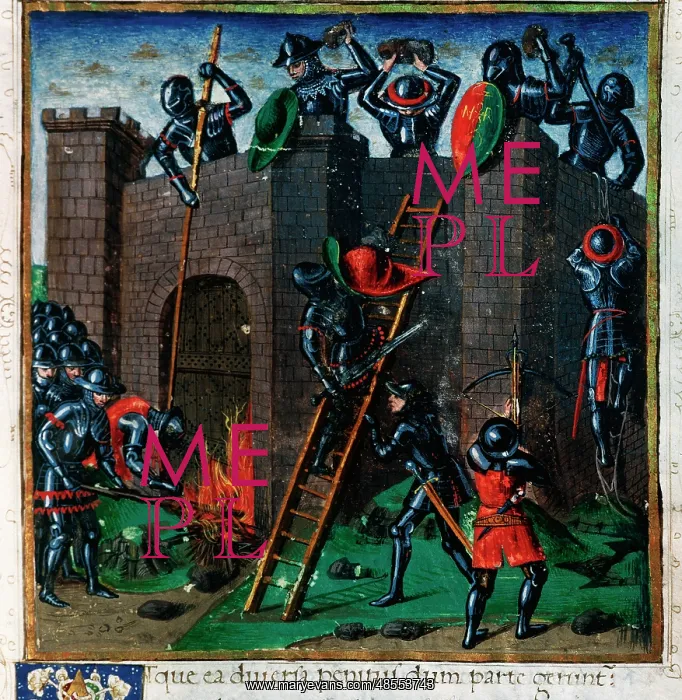 ME
PL
ME
PL
que ea diuersa penitus dum parte gerunt:
www.maryevans.com/48553743